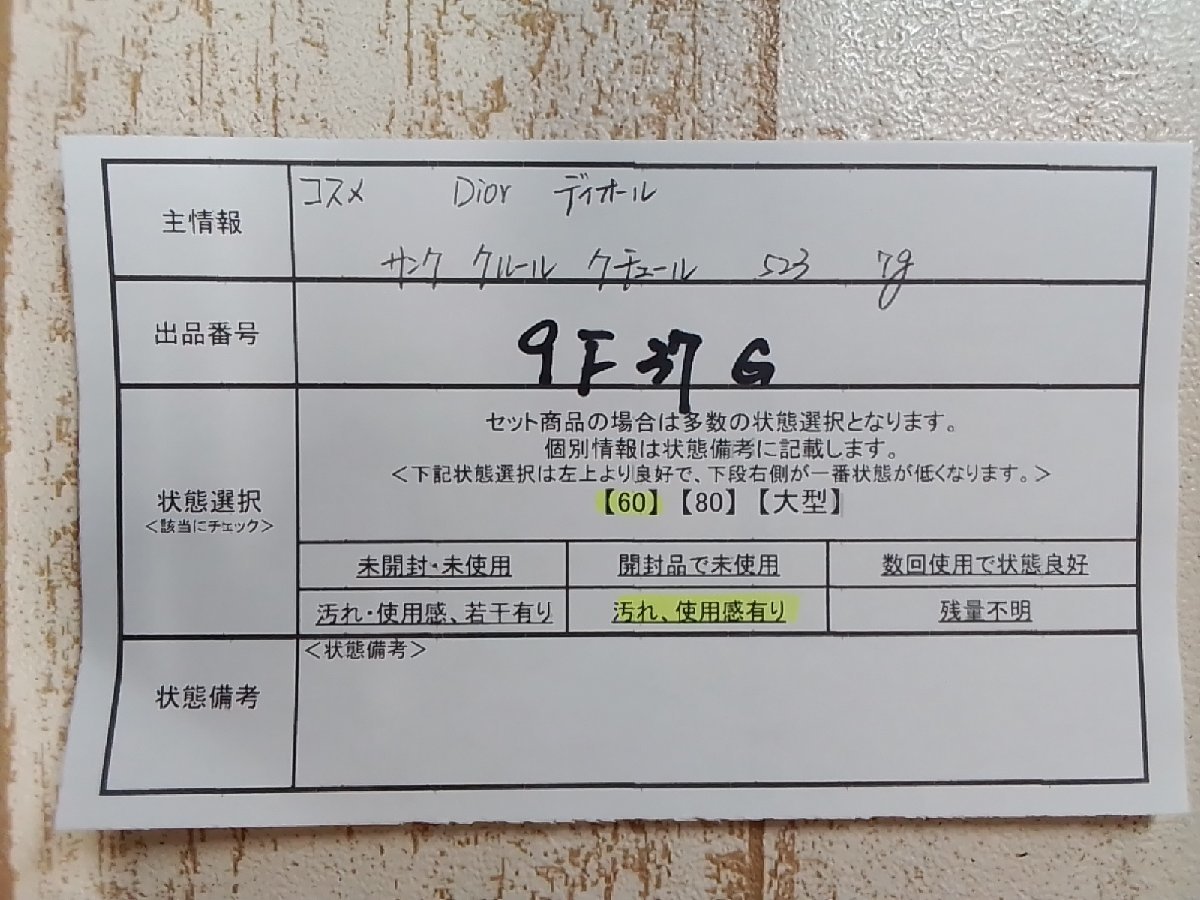 主情報
コスメ Dior ディオール
サンク クルール クチュール 523 7g
出品番号
9F37G
状態選択
<該当にチェック>
セット商品の場合は多数の状態選択となります。
個別情報は状態備考に記載します。
<下記状態選択は左上より良好で、下段右側が一番状態が低くなります。>
【60】【80】【大型】
未開封・未使用 開封品で未使用 数回使用で状態良好
汚れ・使用感、若干有り 汚れ、使用感有り 残量不明
状態備考
<状態備考>